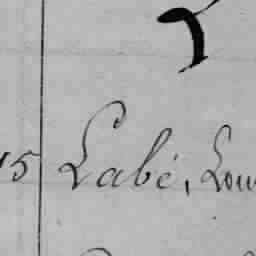 5 Labé, Lou